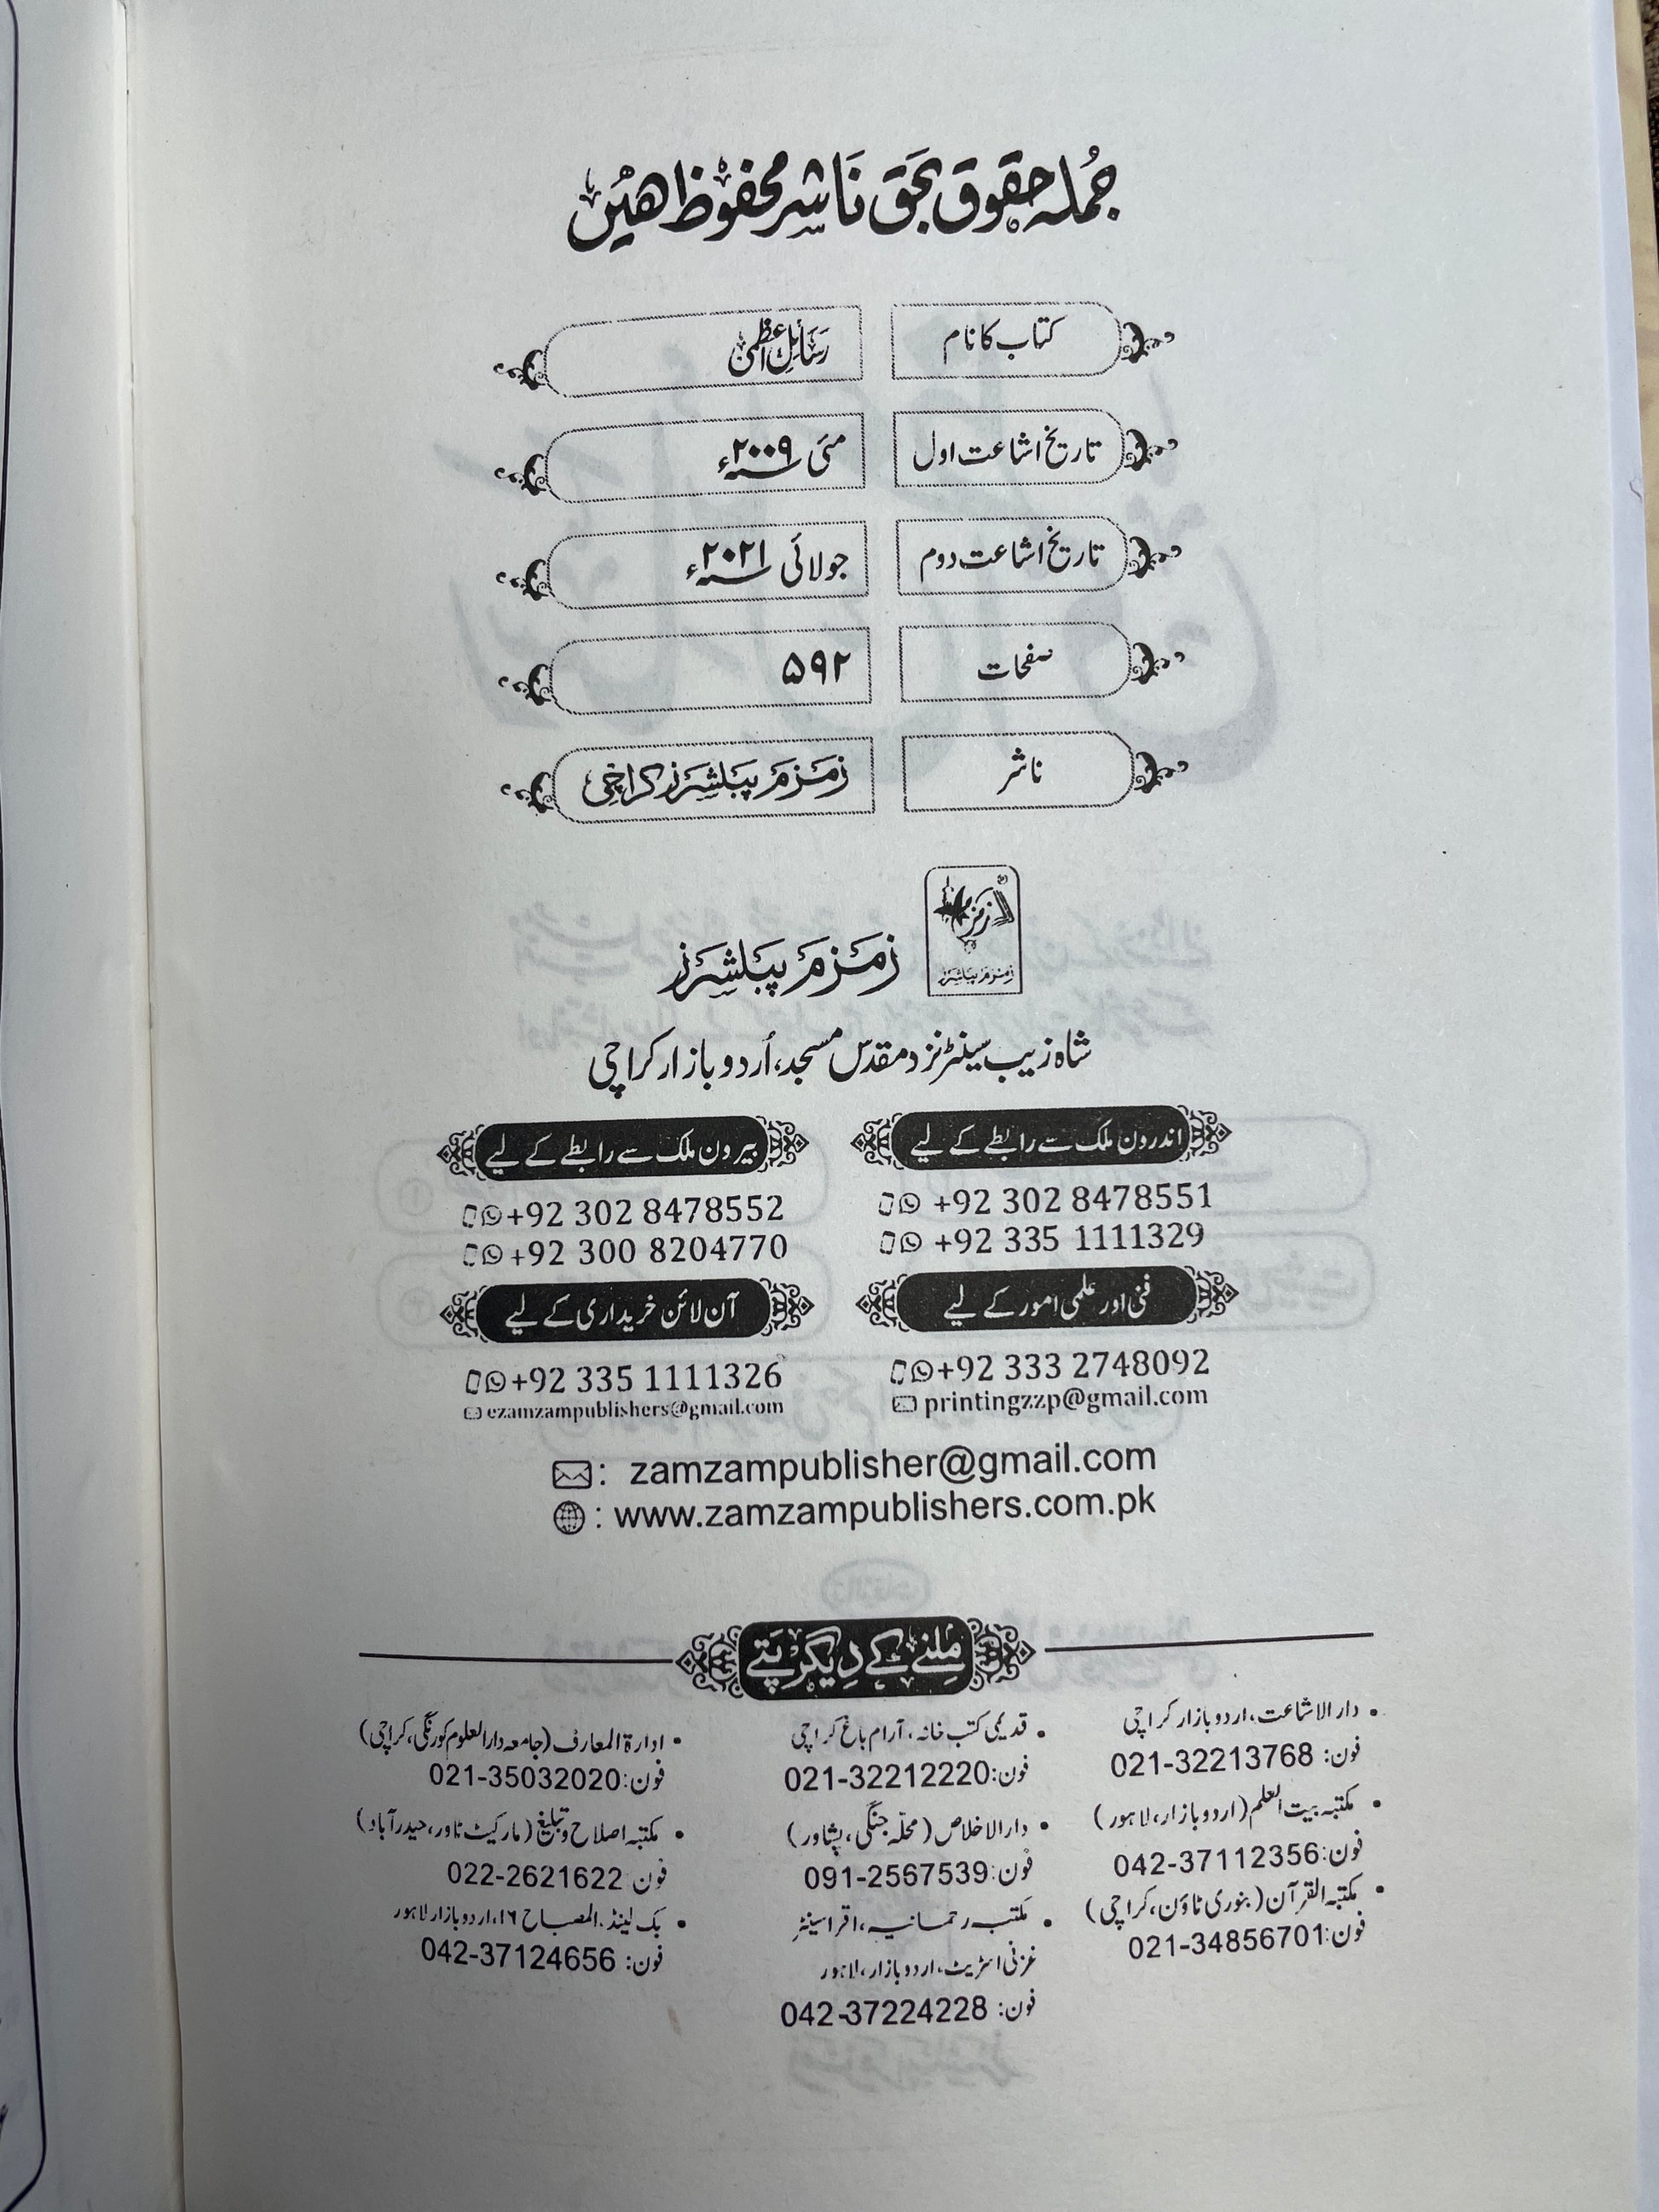 جملہ حقوق بحق ناشر محفوظ ہیں
کتاب کا نام رسائل اعظمی
تاریخ اشاعت اول مئی ۲۰۰۹ء
تاریخ اشاعت دوم جولائی ۲۰۲۱ء
صفحات ۵۹۲
ناشر زمزم پبلشرز کراچی
زمزم پبلشرز
زمزم پبلشرز
شاہ زیب سینٹر نزد مقدس مسجد، اُردو بازار کراچی
اندرون ملک سے رابطے کے لیے
+92 302 8478551
+92 335 1111329
بیرون ملک سے رابطے کے لیے
+92 302 8478552
+92 300 8204770
فنی اور علمی امور کے لیے
+92 333 2748092
printingzzp@gmail.com
آن لائن خریداری کے لیے
+92 335 1111326
ezamzampublishers@gmail.com
: zamzampublisher@gmail.com
: www.zamzampublishers.com.pk
ملنے کے دیگر پتے
• دار الاشاعت، اردو بازار کراچی
فون: 021-32213768
• مکتبہ بیت العلم (اردو بازار، لاہور)
فون: 042-37112356
• مکتبۃ القرآن (بنوری ٹاؤن، کراچی)
فون: 021-34856701
• قدیمی کتب خانہ، آرام باغ کراچی
فون: 021-32212220
• دار الاخلاص (محلہ جنگی، پشاور)
فون: 091-2567539
• مکتب رحمانیہ، اقرا سینٹر
غزنی اسٹریٹ، اردو بازار، لاہور
فون: 042-37224228
• ادارۃ المعارف (جامعہ دار العلوم کورنگی، کراچی)
فون: 021-35032020
• مکتبہ اصلاح و تبلیغ (مارکیٹ ٹاور، حیدر آباد)
فون 022-2621622
• بک لینڈ. المصباح ۱۶، اردو بازار لاہور
فون: 042-37124656